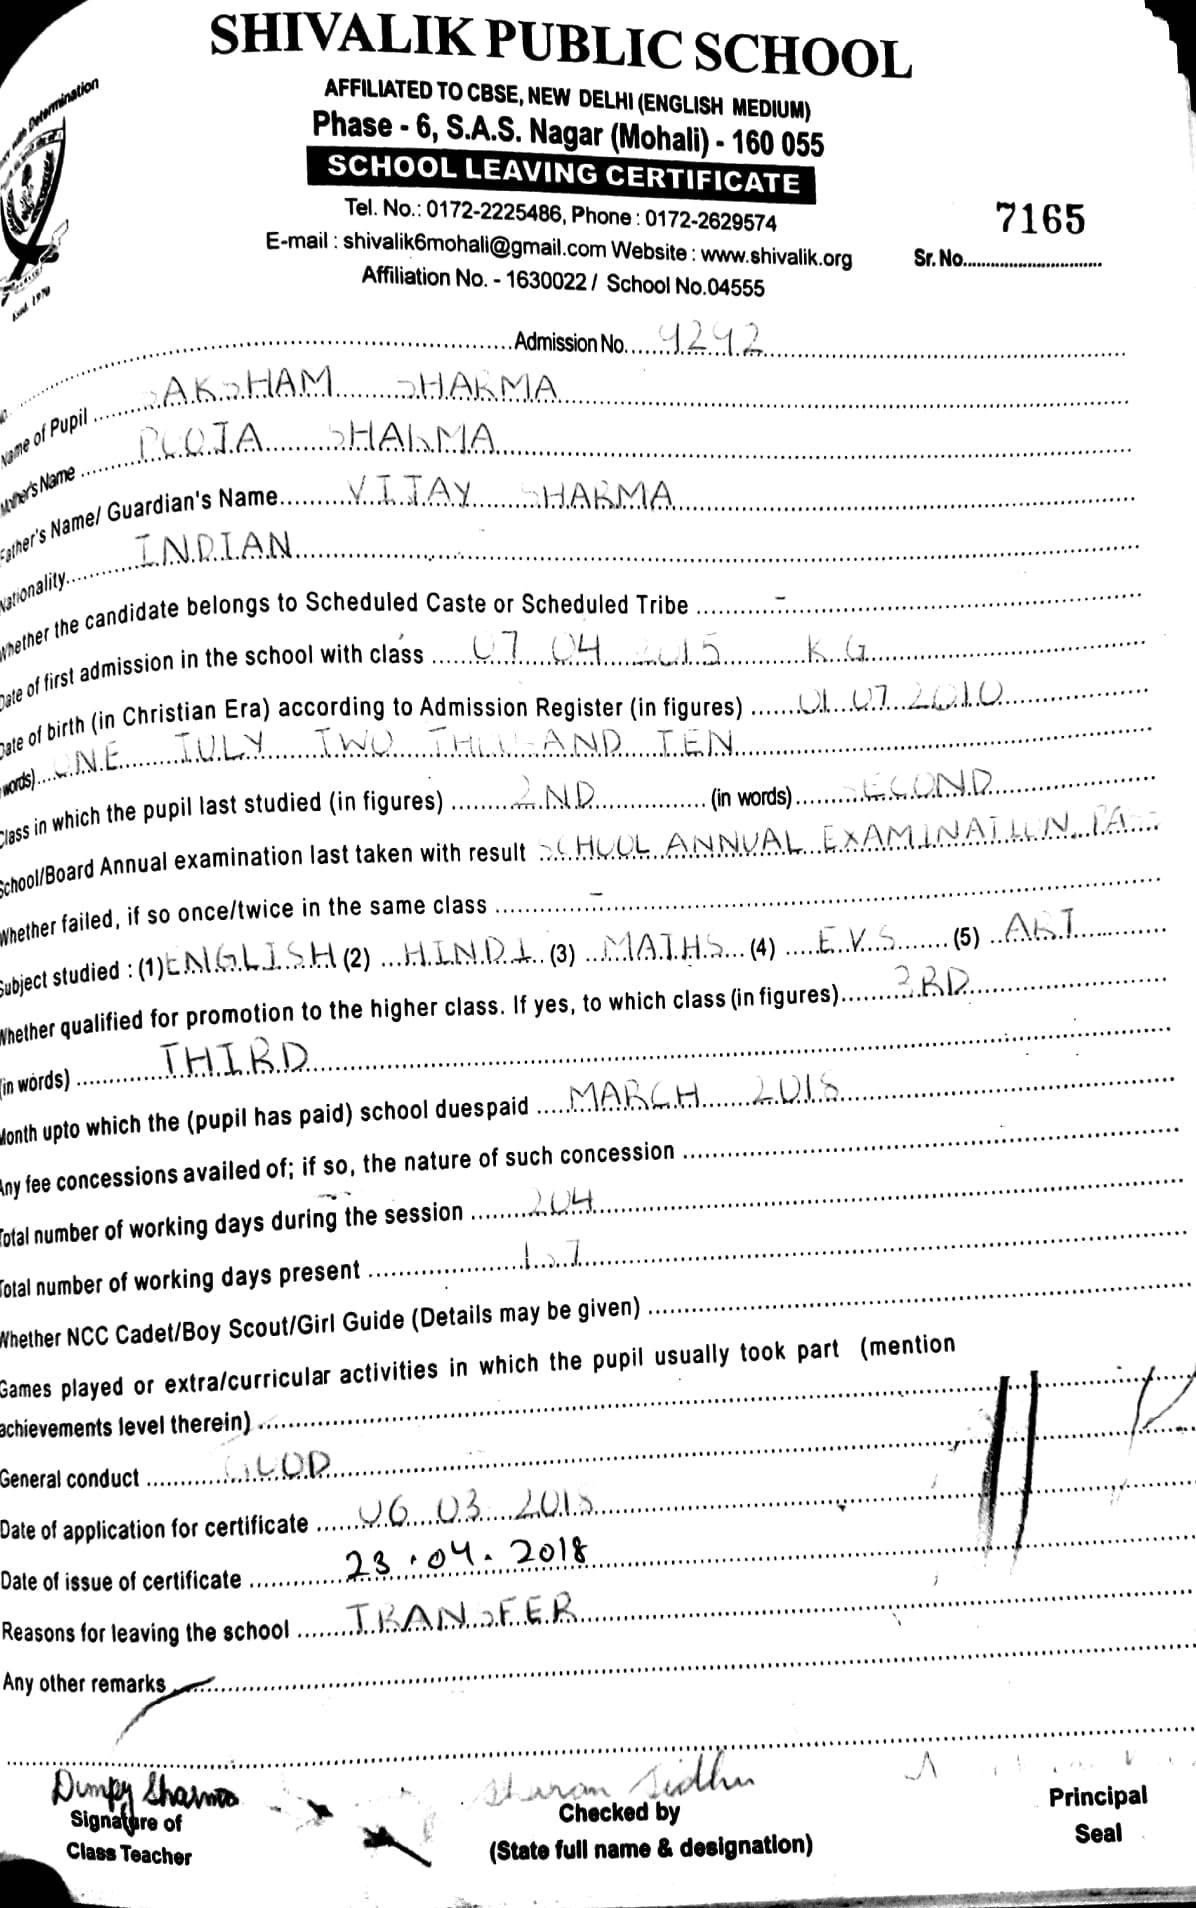 SHIVALIK PUBLIC SCHOOL
AFFILIATED TO CBSE, NEW DELHI (ENGLISH MEDIUM)
Phase - 6, S.A.S. Nagar (Mohali) - 160 055
SCHOOL LEAVING CERTIFICATE
Tel. No.: 0172-2225486, Phone : 0172-2629574
7165
E-mail : shivalik6mohali@gmail.com Website : www.shivalik.org
Sr. No.
Affiliation No. - 1630022 / School No.04555
Determination
Estd. 1970
Admission No. 4242
Name of Pupil SAKSHAM SHARMA
Mother's Name POOJA SHARMA
Father's Name/ Guardian's Name VIJAY SHARMA
Nationality INDIAN
Whether the candidate belongs to Scheduled Caste or Scheduled Tribe -
Date of first admission in the school with class 07 04 2015 K.G
Date of birth (in Christian Era) according to Admission Register (in figures) 01 07 2010
words) ONE JULY TWO THOUSAND TEN
Class in which the pupil last studied (in figures) 2ND (in words) SECOND
School/Board Annual examination last taken with result SCHOOL ANNUAL EXAMINATION PASS
Whether failed, if so once/twice in the same class -
Subject studied : (1) ENGLISH (2) HINDI (3) MATHS (4) E.V.S (5) ART
Whether qualified for promotion to the higher class. If yes, to which class (in figures) 3RD
(in words) THIRD
Month upto which the (pupil has paid) school duespaid MARCH 2018
Any fee concessions availed of; if so, the nature of such concession
Total number of working days during the session 204
Total number of working days present
Whether NCC Cadet/Boy Scout/Girl Guide (Details may be given)
Games played or extra/curricular activities in which the pupil usually took part (mention
achievements level therein)
General conduct GOOD
Date of application for certificate 06 03 2018
Date of issue of certificate 23.04.2018
Reasons for leaving the school TRANSFER
Any other remarks
Dimpy Sharma
Sharan Sidhu
Signature of
Class Teacher
Checked by
(State full name & designation)
Principal
Seal